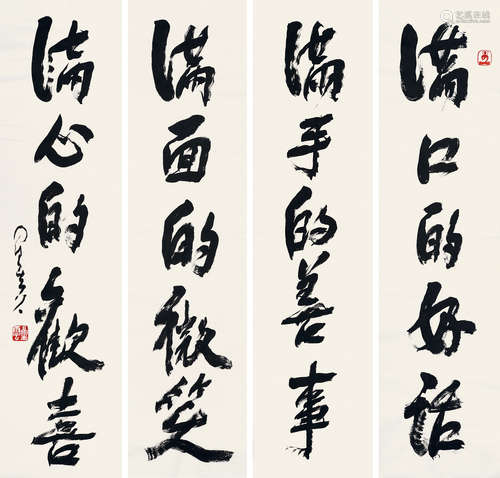 满口的好话
满手的善事
满面的微笑
满心的歡喜
星雲